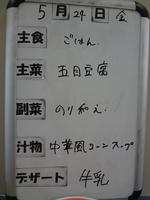 5月24日 金
主食 ごはん
主菜 五目豆腐
副菜 のり和え
汁物 中華風コーンスープ
デザート 牛乳